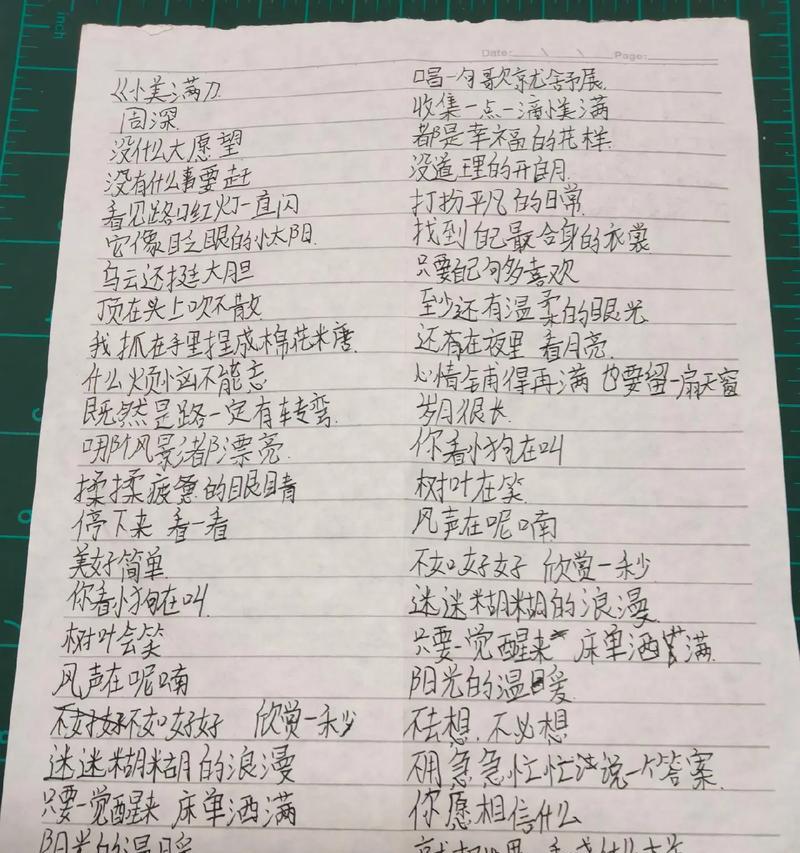 inch
Date: \ \ Page:
《小美满》
周深
没什么大愿望
没有什么事要赶
看见路口红灯一直闪
它像眨眼的小太阳
乌云还挺大胆
顶在头上吹不散
我抓在手里捏成棉花米糖
什么烦恼不能忘
既然是路一定有转弯
哪个风景都漂亮
揉揉疲惫的眼睛
停下来 看一看
美好简单
你看小狗在叫
树叶会笑
风声在呢喃
不如好好 欣赏一秒
迷迷糊糊的浪漫
只要一觉醒来 床单洒满
阳光的温暖
唱一句歌就舒展
收集一点一滴小美满
都是幸福的花样
没道理的开朗
打扮平凡的日常
找到自己最合身的衣裳
只要自己多喜欢
至少还有温柔的眼光
还有在夜里 看月亮
心情铺得再满 也要留一扇天窗
岁月很长
你看小狗在叫
树叶在笑
风声在呢喃
不如好好 欣赏一秒
迷迷糊糊的浪漫
只要一觉醒来 床单洒满
阳光的温暖
不去想 不必想
不用急急忙忙说一个答案
你愿相信什么